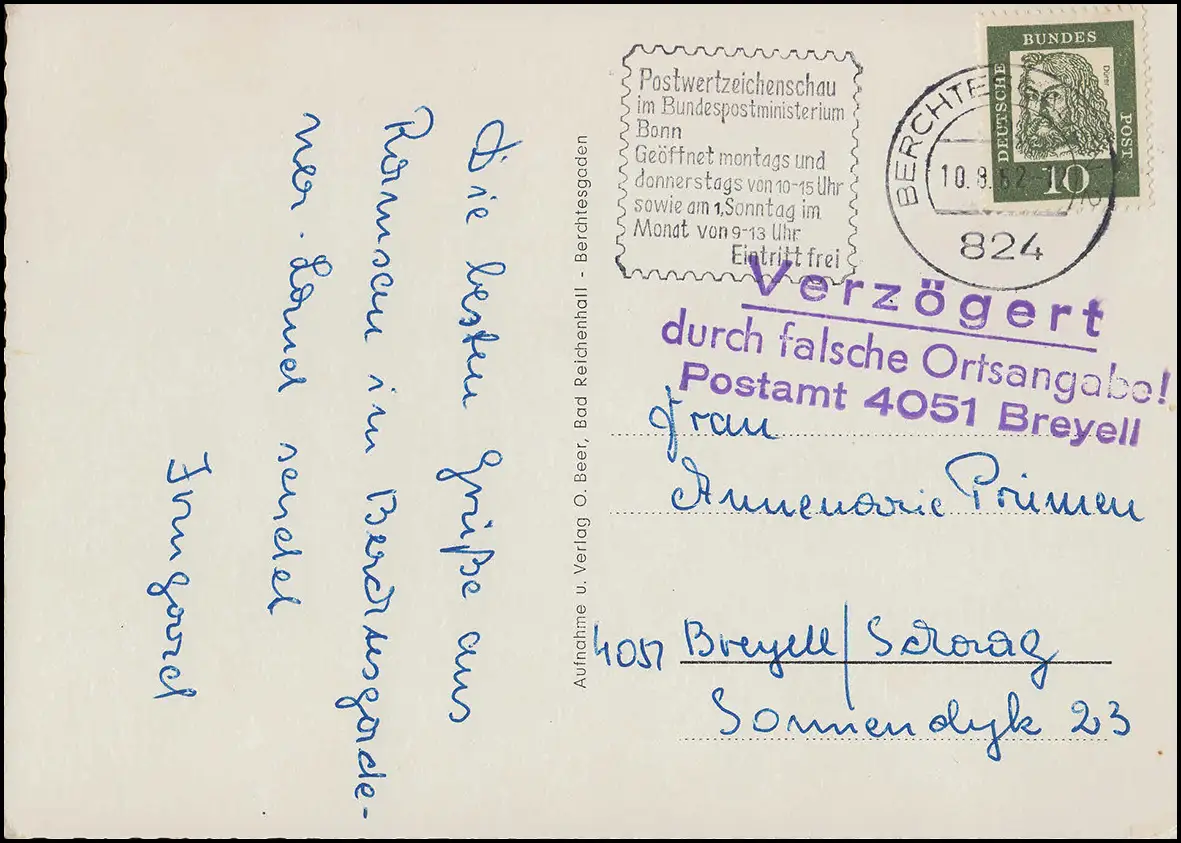 Die besten Grüße aus
Ramsau im Berchtesgade-
ner-Land sendet
Irmgard
Aufnahme u. Verlag O. Beer, Bad Reichenhall - Berchtesgaden
Postwertzeichenschau
im Bundespostministerium
Bonn
Geöffnet montags und
donnerstags von 10-15 Uhr
sowie am 1. Sonntag im
Monat von 9-13 Uhr
Eintritt frei
BERCHTE
10.8.62
824
DEUTSCHE
BUNDES
POST
Dürer
10
Verzögert
durch falsche Ortsangabe!
Postamt 4051 Breyell
Frau
Annemarie Prümen
4051 Breyell/Schaag
Sonnendyk 23